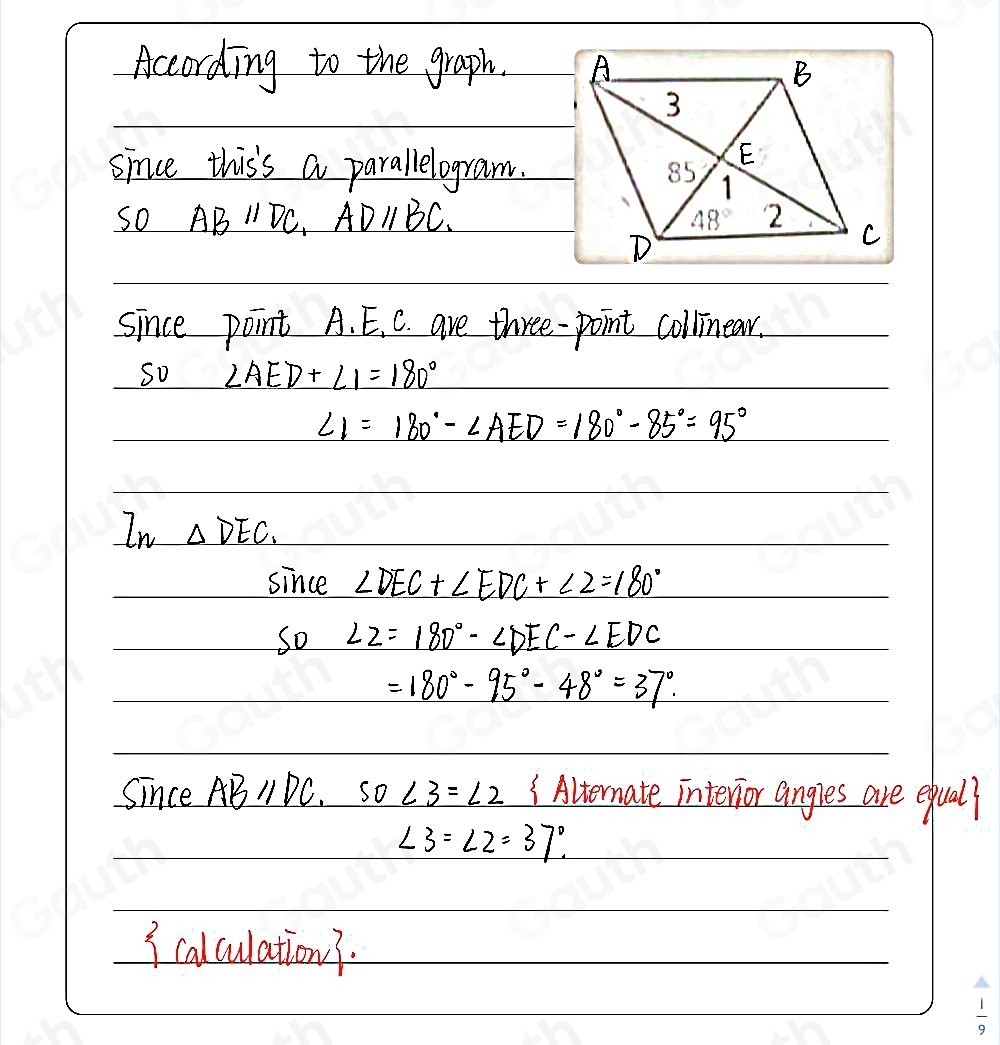 According to the graph.
since this's a parallelogram.
so AB // DC. AD // BC.
A
B
3
E
85
1
48°
2
D
C
since point A.E.C. are three-point collinear.
so ∠AED + ∠1 = 180°
∠1 = 180° - ∠AED = 180° - 85° = 95°
In △ DEC.
since ∠DEC + ∠EDC + ∠2 = 180°
so ∠2 = 180° - ∠DEC - ∠EDC
= 180° - 95° - 48° = 37°.
since AB // DC. so ∠3 = ∠2 { Alternate interior angles are equal}
∠3 = ∠2 = 37°.
{ calculation }.
1
9
Gauth